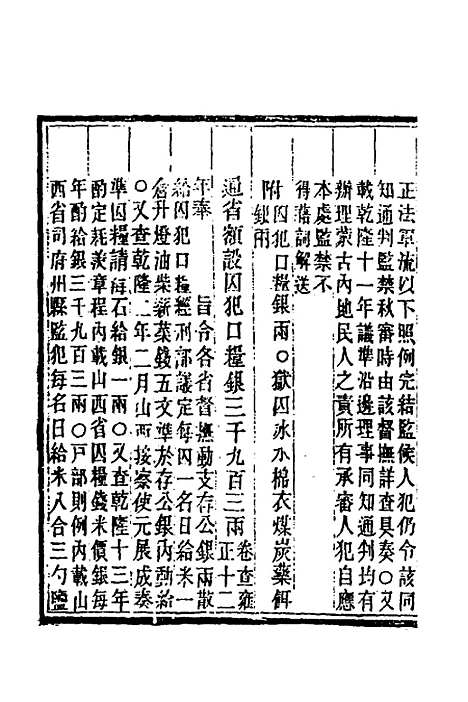 正法軍流以下照例完結監候人犯仍令該同
知通判監禁秋審時由該督撫詳查具奏〇又
載乾隆十一年議準沿邊理事同知通判均有
辦理蒙古內地民人之責所有承審人犯自應
本處監禁不
得藉詞解送
附囚犯口糧銀兩〇獄囚冰水棉衣煤炭藥餌
附銀兩
通省額設囚犯口糧銀三千九百三兩 卷查雍正十二
年奉 旨令各省督撫動支存公銀兩散
給囚犯口糧經刑部議定每囚一名日給米一
倉升燈油柴薪菜錢五文準於存公銀內動給
〇又查乾隆二年二月山西按察使元展成奏
準囚糧請每石給銀一兩〇又查乾隆十三年
酌定耗羨章程內載山西省囚糧錢米價銀每
年酌給銀三千九百三兩〇戶部則例內載山
西省司府州縣監犯每名日給米八合三勺鹽